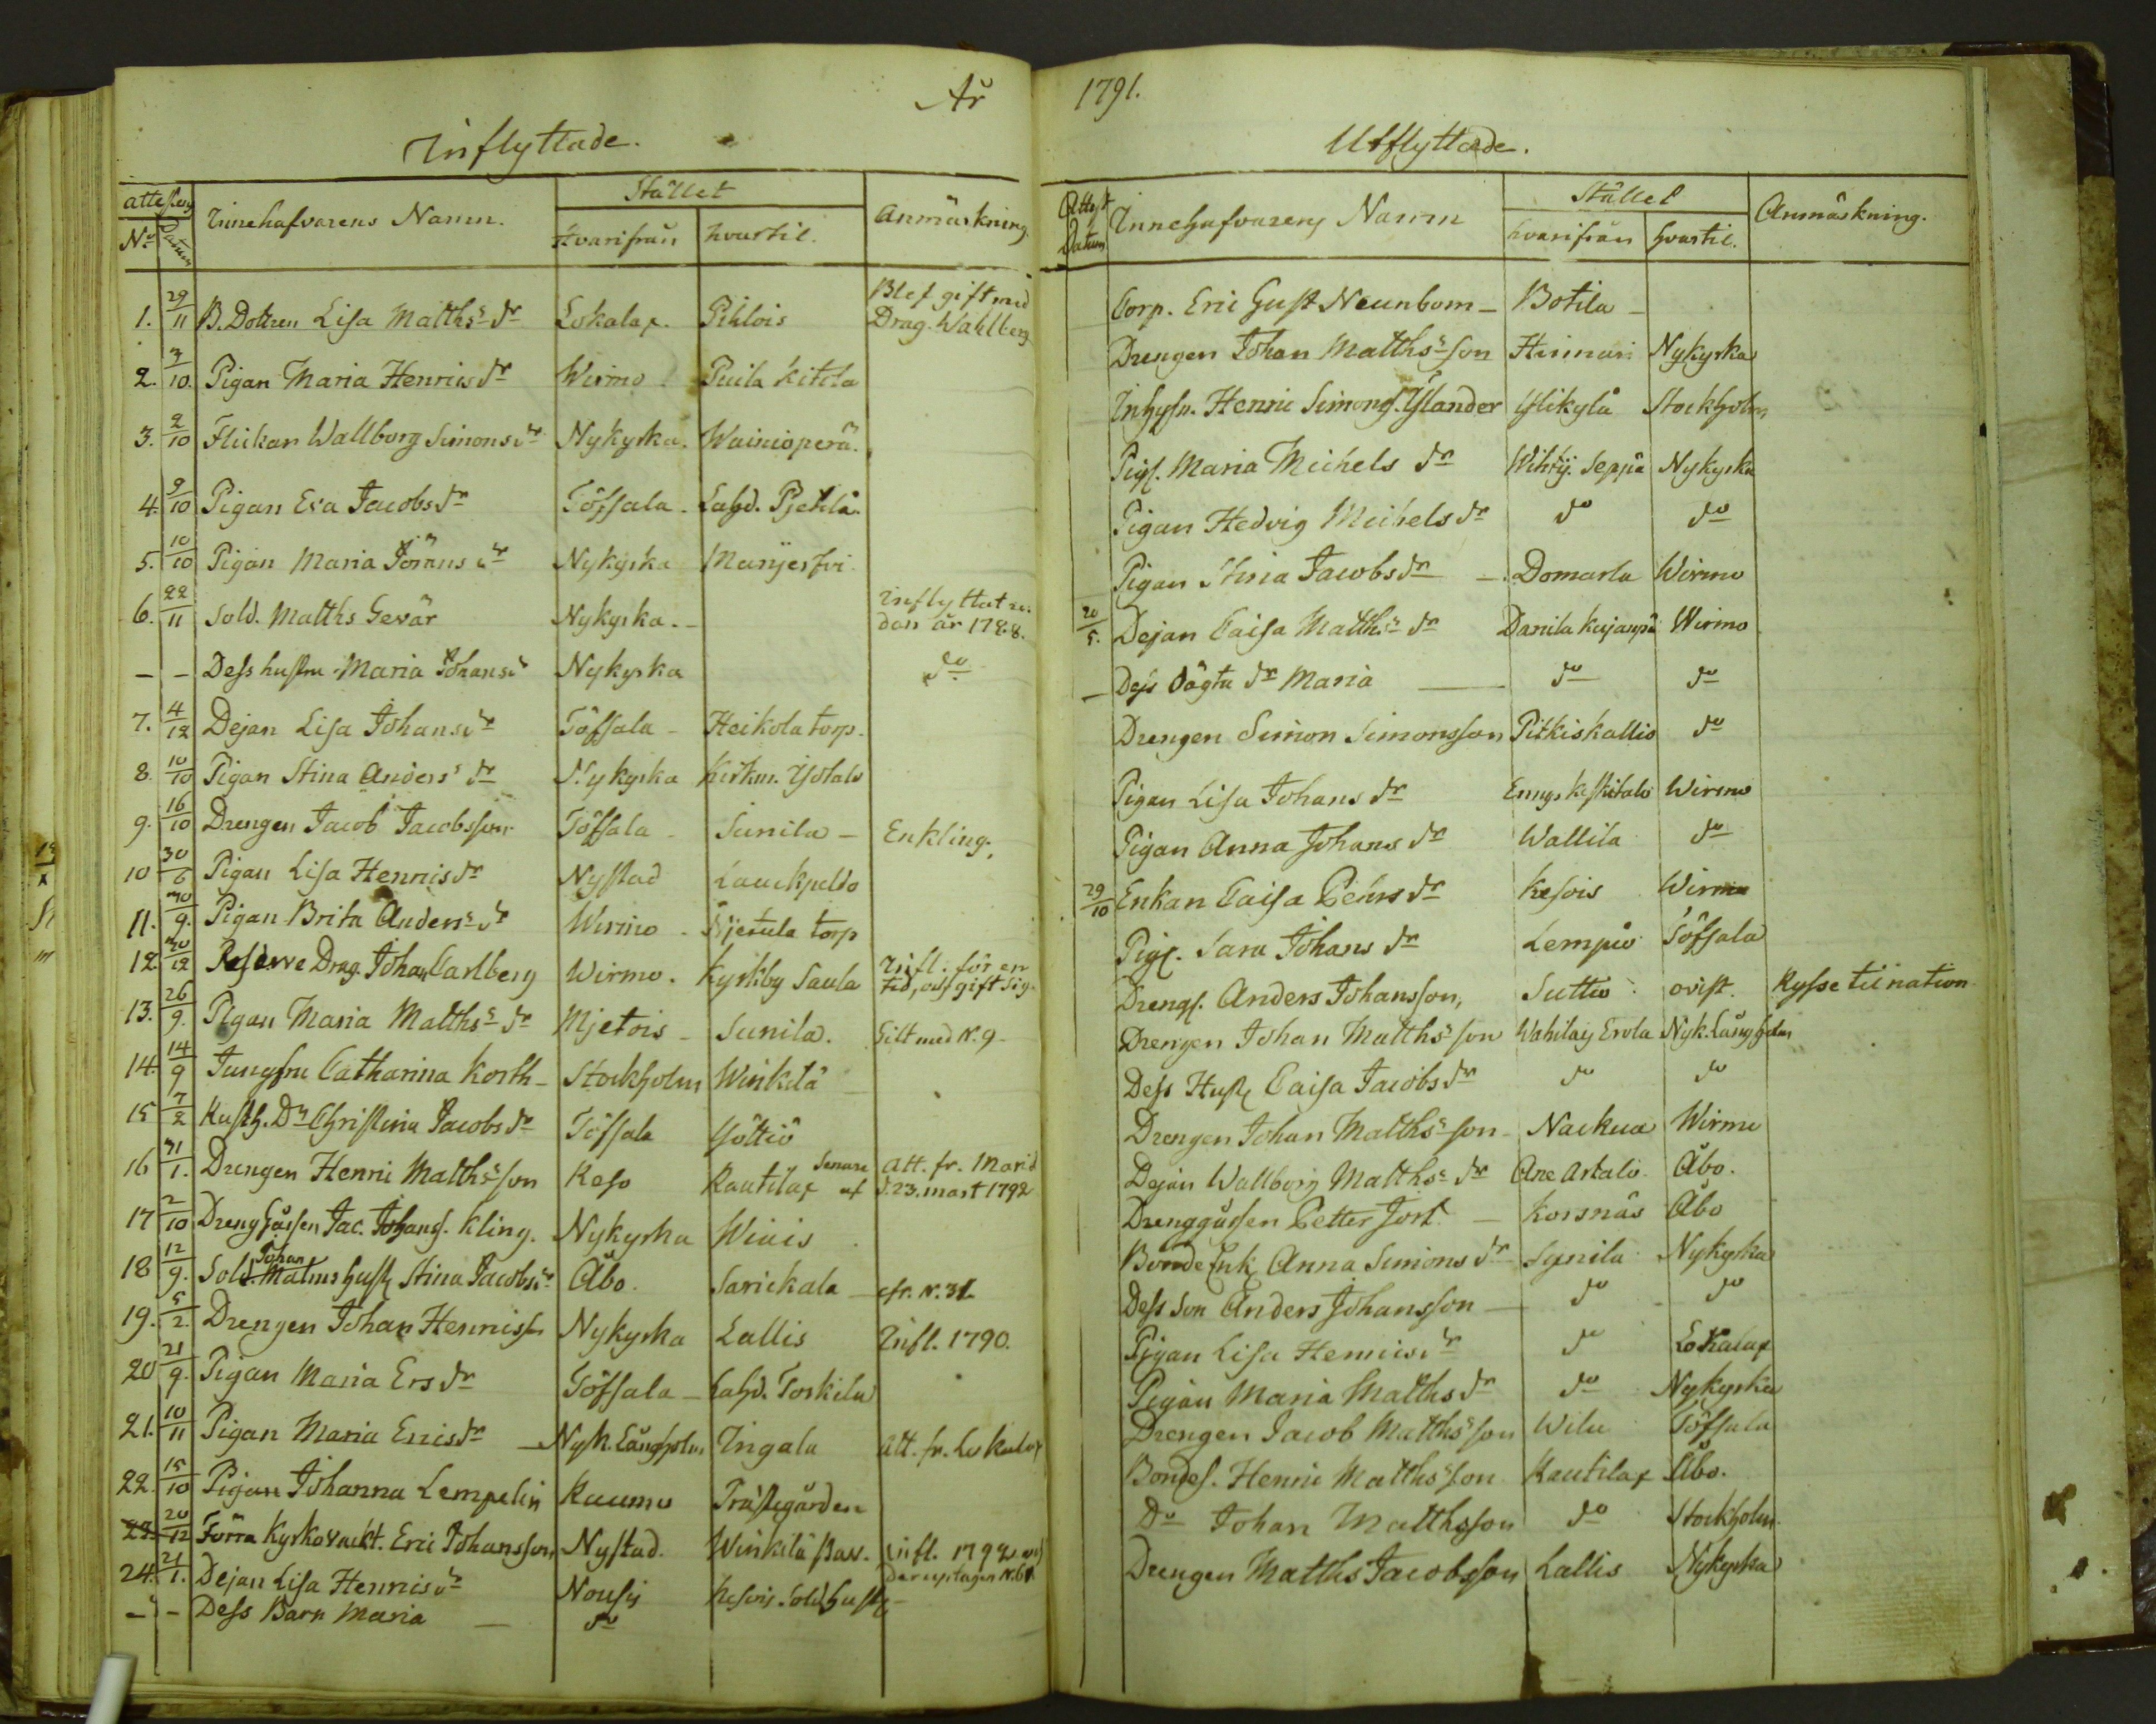 År
Inflyttade.
attesterns Innehafvarens Namn. Stället Anmärkning
No Datum Hvarifrån hvartil.
1. 29/11 B. Dottren Lisa Matthsdr Lokalax. Pihlois Blef gift med Drag. Wahlberg
2. 3/10. Pigan Maria Henricsdr Wirmo Puila Kitila
3. 2/10 Flickan Wallborg Simonsdr Nykyrka. Wainioperä.
4. 9/10 Pigan Eva Jacobsdr Töfsala Lahd. Pjetilä
5. 10/10 Pigan Maria Jöransdr Nykyrka Manjerfvi
6. 22/11 Sold. Matths Gevär Nykyrka. Inflyttat re- dan år 1788.
- - Dess hustru Maria Johansdr Nykyrka do
7. 4/12 Dejan Lisa Johansdr Töfsala Heikola torp.
8. 10/10 Pigan Stina Andersdr Nykyrka Kirkm. Ysotalo
9. 16/10 Drengen Jacob Jacobsson Töfsala Sunila Enkling.
10 30/6 Pigan Lisa Henricsdr Nystad Lauckpeldo
11. 30/9. Pigan Brita Andersdr Wirmo Pjetula torp
12. 30/12 Reserve Drag. Johan Carlberg Wirmo. Kyrkby Saula Infl. för en tid, och gift sig.
13. 26/9. Pigan Maria Matthsdr Mjetois Sunila. Gift med N. 9
14. 14/9 Jungfru Catharina Korth Stockholm Winkilä
15 7/2 Rusth. Dr Christina Jacobsdr Töfsala Ysöttiö
16 31/1. Drengen Henric Matthsson Keso Rautilax Senare att. fr. Masid d. 23. mart 1792
17 2/10 Drenggåssen Jac. Johanss. Kling. Nykyrka Wiais
18 12/9. Sold. Johan Malms hust. Stina Jacobsdr Åbo. Sarickala cfr. N. 31.
19. 5/2. Drengen Johan Henricss. Nykyrka Lallis Infl. 1790.
20 21/9. Pigan Maria Ersdr Töfsala Lahd. Toskila
21. 10/11 Pigan Maria Ericsdr Nyk. Långholm Ingala Att. fr. Lokalax
22. 15/10 Pigan Johanna Lempelin Raumo Prästgården
23. 20/12 Förra Kyrkovackt. Eric Johansson, Nystad. Winkilä Bac. infl. 1792 och der uptagen N. 61
24. 21/1. Dejan Lisa Henricsdr Nousis Kesois. Sold. hust.
- - Dess Barn Maria do
1791.
Utflyttade.
Attest Datum Innehafvarens Namn Stället Anmärkning.
hvarifrån hvartil.
Corp. Eric Gust Neunbom Botila
Drengen Johan Matthsson Hinnari Nykyrka
Inhysn. Henric Simonss. Ylander Ylikylä Stockholm
Pig. Maria Michels dr Wihty. Seppä Nykyrka
Pigan Hedvig Michelsdr do do
Pigan Stina Jacobsdr Domarla Wirmo
20/5. Dejan Caisa Matthsdr Danila Kujanpä Wirmo
Dess oägta dr Maria do do
Drengen Simon Simonsson Pitkiskallio do
Pigan Lisa Johans dr Ennys Keskitalo Wirmo
Pigan Anna Johans dr Wallila do
29/10 Enkan Caisa Pehrsdr Kesois Wirmo
Pig. Sara Johans dr Lempiö Töfsala
Dreng. Anders Johansson, Suttio ovist. Rysse til nation
Drengen Johan Matthsson Wahilais Erola Nyk. Långholm
Dess Hust. Caisa Jacobsdr do do
Drengen Johan Matthsson Naekua Wirmo
Dejan Wallborg Matthsdr Ane Artalo Åbo.
Drenggåssen Petter Jost Korsnäs Åbo
Bonde Enk. Anna Simonsdr Synila Nykyrka
Dess Son Anders Johansson do do
Pigan Lisa Henricsdr do Lokalax
Pigan Maria Matthsdr do Nykyrka
Drengen Jacob Matthsson Wilu Töfsala
Bondes. Henric Matthsson Rautilax Åbo.
Do Johan Matthsson do Stockholm.
Drengen Matths Jacobsson Lallis Nykyrka